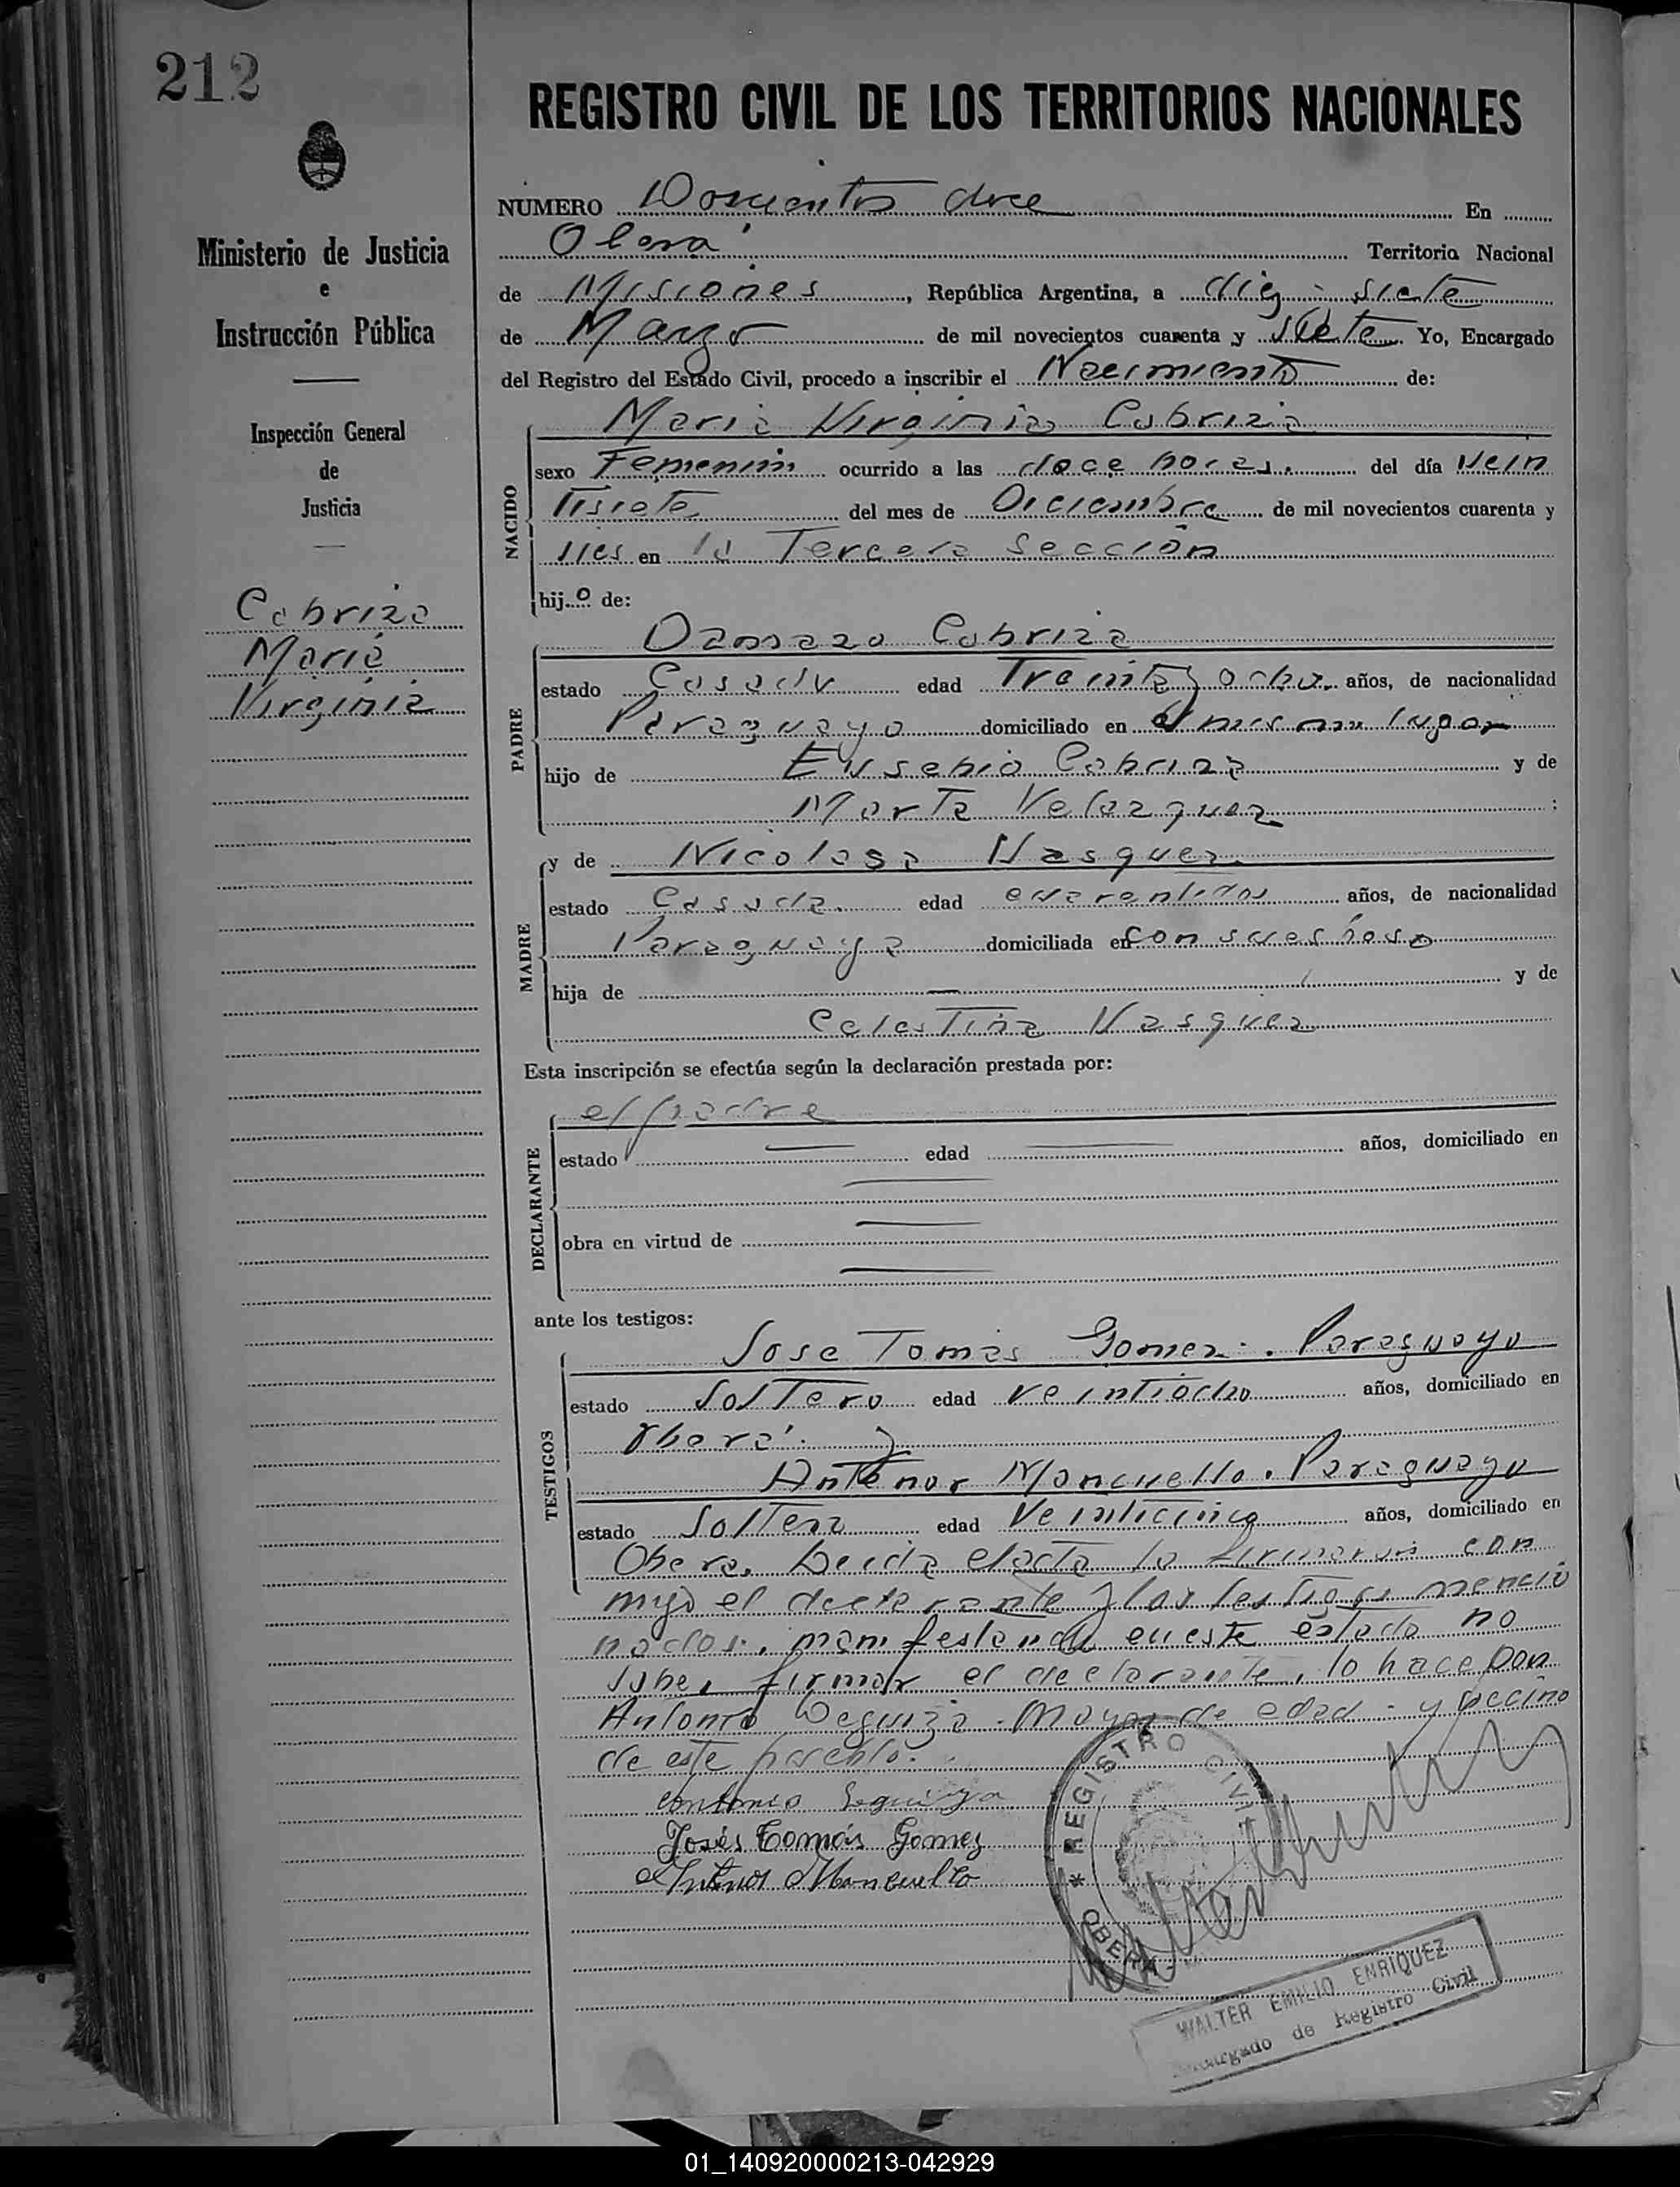 212
REGISTRO CIVIL DE LOS TERRITORIOS NACIONALES
Ministerio de Justicia
e
Instrucción Pública
Inspección General
de
Justicia
Cabriza
Maria
Virginia
NUMERO Doscientos doce En
Oberá Territorio Nacional
de Misiones, República Argentina, a diez siete
de Marzo de mil novecientos cuarenta y siete Yo, Encargado
del Registro del Estado Civil, procedo a inscribir el Nacimiento de:
NACIDO
Maria Virginia Cabriza
sexo Femenin ocurrido a las doce horas. del día vein
tisiete del mes de Diciembre de mil novecientos cuarenta y
sies en la Tercera Sección
hijo de:
PADRE
Damazo Cabriza
estado Casado edad Treinta y ocho años, de nacionalidad
Paraguayo domiciliado en el mismo lugar
hijo de Eusebio Cabriza y de
Marta Velazquez :
MADRE
y de Nicolasa Vasquez
estado Casada edad cuarentidos años, de nacionalidad
Paraguaya domiciliada en con su esposo
hija de — y de
Celestina Vasquez
Esta inscripción se efectúa según la declaración prestada por:
DECLARANTE
el padre
estado — edad — años, domiciliado en
obra en virtud de
ante los testigos:
TESTIGOS
Jose Tomas Gomez. Paraguayo
estado Soltero edad veintiocho años, domiciliado en
Oberá. y
Antenor Mancuello. Paraguayo
estado Soltero edad Veinticinco años, domiciliado en
Obera. Leida el acta la firmaron con
migo el declarante y los testigos mencio
nados, manifestando en este estado no
saber firmar el declarante, lo hace Don
Antonio Deguiza. Mayor de edad y vecino
de este pueblo.
Antonio
Josés Tomás Gomez
Antenor Mancuello
* REGISTRO CIVIL
OBERA
WALTER EMILIO ENRIQUEZ
Encargado de Registro Civil
01_140920000213-042929